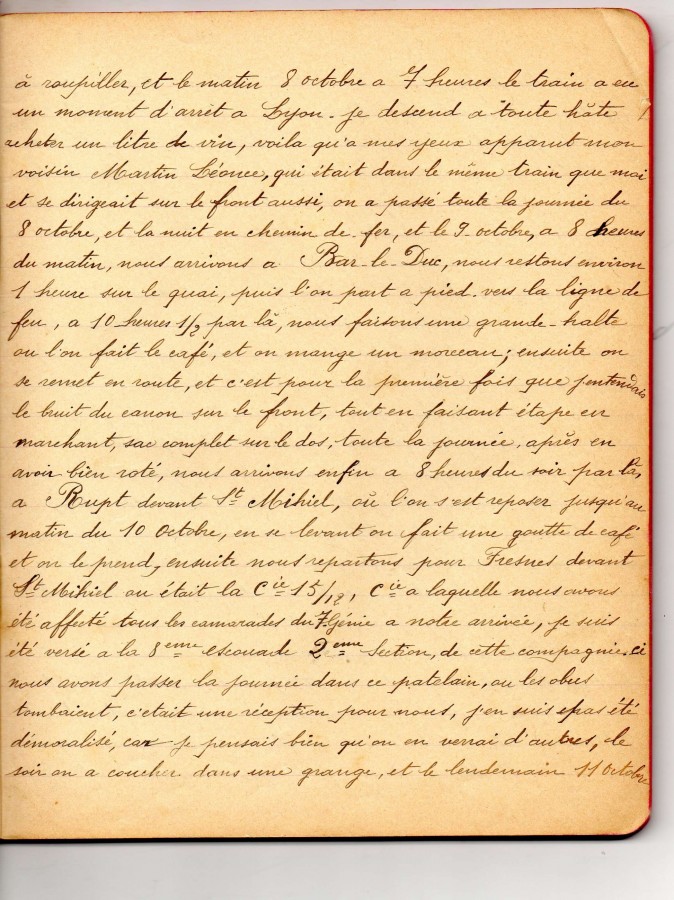 à roupiller, et le matin 8 octobre a 7 heures le train a eu
un moment d'arrêt a Lyon. je descend a toute hâte
acheter un litre de vin, voila qu'a mes yeux apparut mon
voisin Martin Léonce, qui était dans le même train que moi
et se dirigeait sur le front aussi, on a passé toute la journée du
8 octobre, et la nuit en chemin de fer, et le 9 octobre, a 8 heures
du matin, nous arrivons a Bar-le-Duc, nous restons environ
1 heure sur le quai, puis l'on part a pied. vers la ligne de
feu, a 10 heures 1/2 par là, nous faisons une grande-halte
ou l'on fait le café, et on mange un morceau; ensuite on
se remet en route, et c'est pour la première fois que j'entendais
le bruit du canon sur le front, tout en faisant étape en
marchant, sac complet sur le dos, toute la journée, après en
avoir bien roté, nous arrivons enfin a 8 heures du soir par là,
a Rupt devant St Mihiel, où l'on s'est reposer jusqu'au
matin du 10 Octobre, en se levant on fait une goutte de café
et on le prend, ensuite nous repartons pour Fresnes devant
St Mihiel ou était la Cie 15/12, Cie a laquelle nous avons
été affecté tous les camarades du 7 Génie a notre arrivée, je suis
été versé a la 8eme escouade 2eme Section, de cette compagnie. ci
nous avons passer la journée dans ce patelain, ou les obus
tombaient, c'etait une réception pour nous, j'en suis pas été
démoralisé, car je pensais bien qu'on en verrai d'autres, le
soir on a coucher dans une grange, et le lendemain 11 Octobre